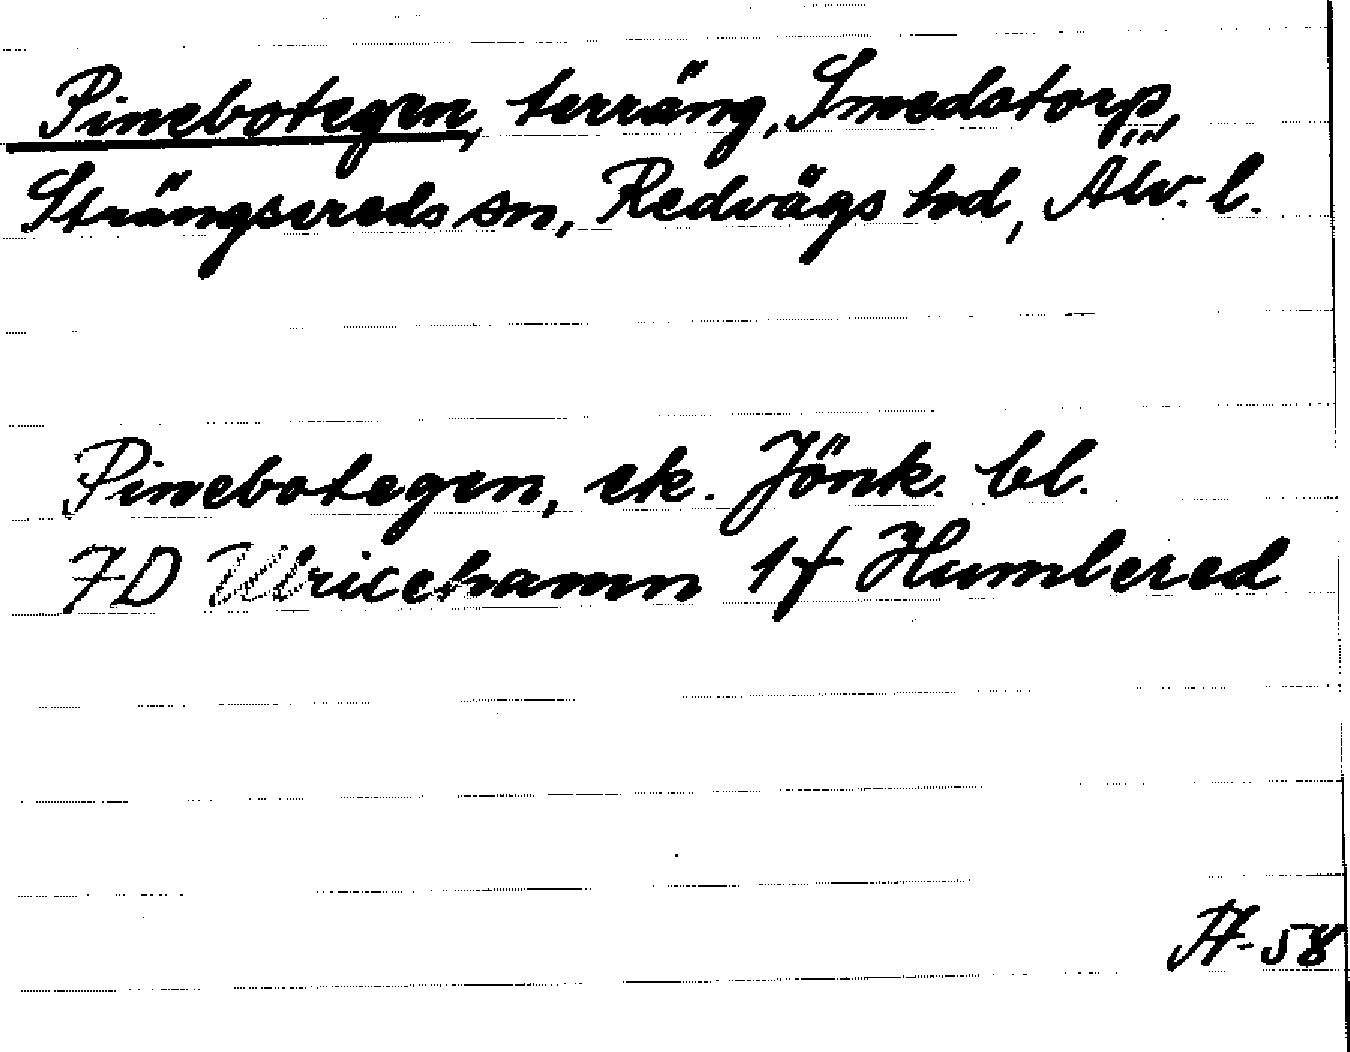 Pinebotegen, terräng, Smedstorp,
Strängsereds sn, Redvägs hd, Älv. l.
Pinebotegen, ek. Jönk. bl.
7D Ulricehamn 1f Humbered
-58